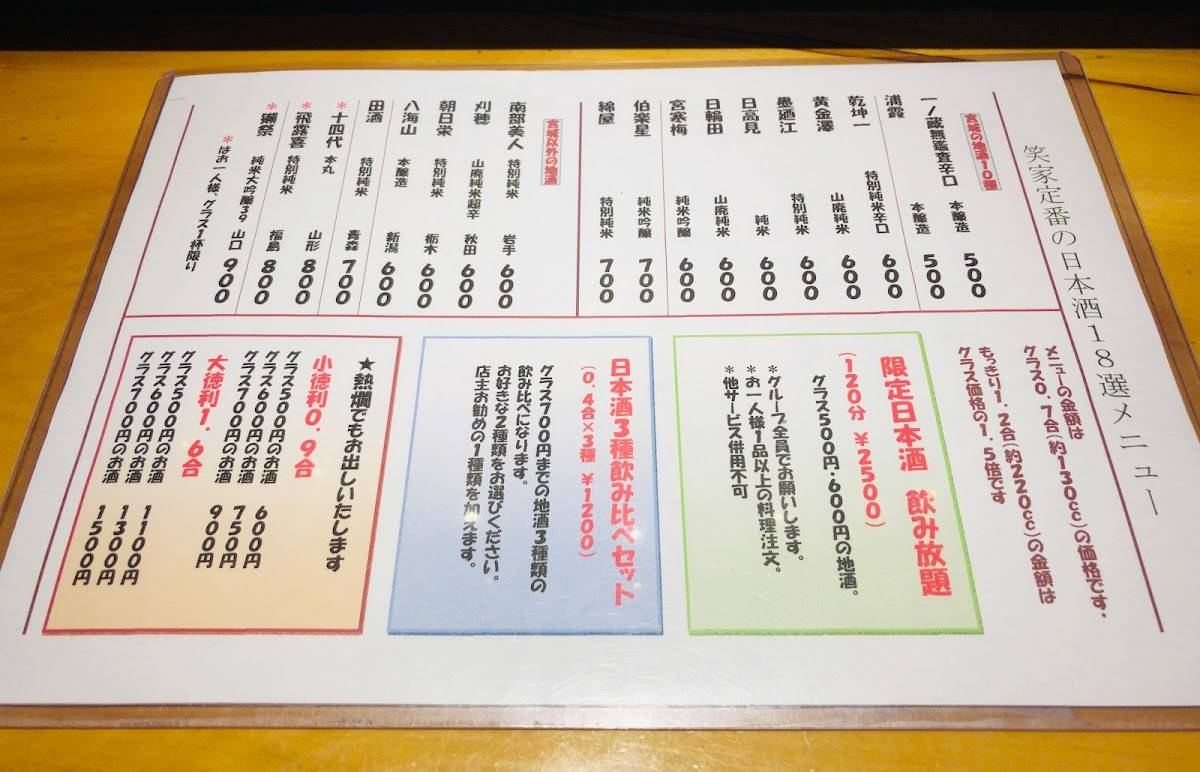 笑家定番の日本酒18選メニュー
メニューの金額は
グラス0.7合(約130cc)の価格です・
もっきり1.2合(約220cc)の金額は
グラス価格の1.5倍です
宮城の地酒10種
一ノ蔵無鑑査辛口 本醸造 500
浦霞 本醸造 500
乾坤一 特別純米辛口 600
黄金澤 山廃純米 600
墨廼江 特別純米 600
日高見 純米 600
日輪田 山廃純米 600
宮寒梅 純米吟醸 600
伯楽星 純米吟醸 700
綿屋 特別純米 700
宮城以外の地酒
南部美人 特別純米 岩手 600
刈穂 山廃純米超辛 秋田 600
朝日栄 特別純米 栃木 600
八海山 本醸造 新潟 600
田酒 特別純米 青森 700
＊十四代 本丸 山形 800
＊飛露喜 特別純米 福島 800
＊獺祭 純米大吟醸39 山口 900
＊はお一人様、グラス1杯限り
限定日本酒 飲み放題
(120分 ¥2500)
グラス500円・600円の地酒。
＊グループ全員でお願いします。
＊お一人様1品以上の料理注文。
＊他サービス併用不可
日本酒3種飲み比べセット
(0.4合×3種 ¥1200)
グラス700円までの地酒3種類の
飲み比べになります。
お好きな2種類をお選びください。
店主お勧めの1種類を加えます。
★熱燗でもお出しいたします
小徳利0.9合
グラス500円のお酒 600円
グラス600円のお酒 750円
グラス700円のお酒 900円
大徳利1.6合
グラス500円のお酒 1100円
グラス600円のお酒 1300円
グラス700円のお酒 1500円